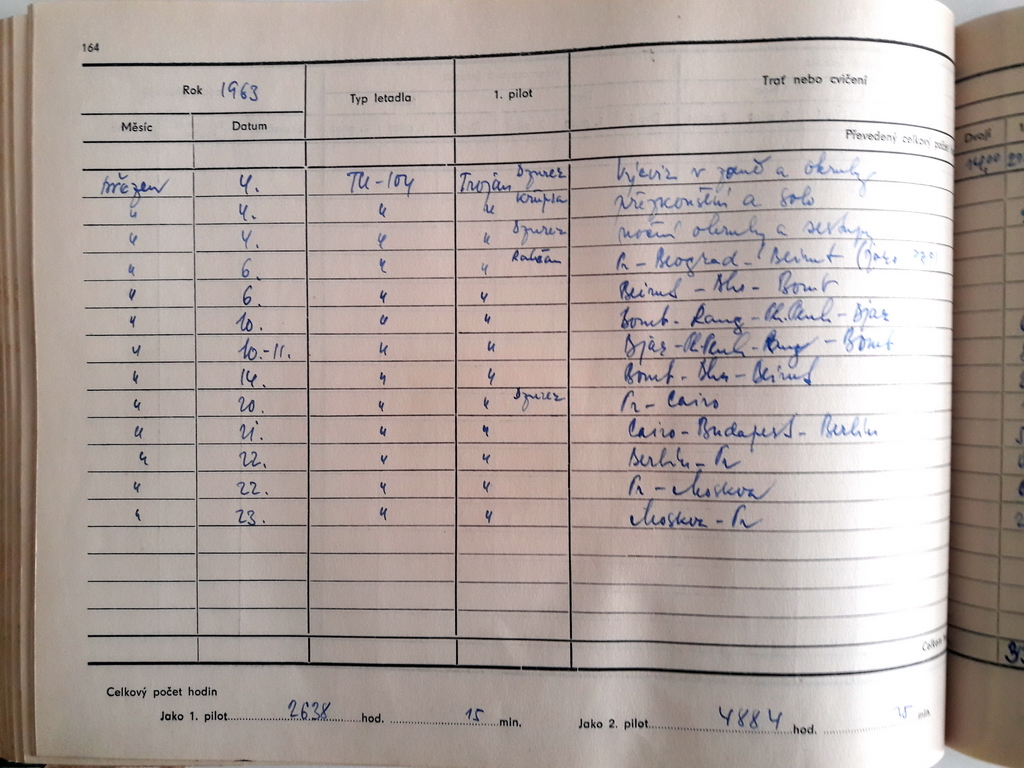 164
Rok 1963 Typ letadla 1. pilot Trať nebo cvičení
Měsíc Datum
Převedený celkový počet
Dvojí
březen 4. TU-104 Trojan Dzurez v a okruhy
" 4. " " Krupla přezkoušení a solo
" 4. " " Dzurez noční okruhy a sestupy
" 6. " " Pr - Beograd - Beirut
" 6. " " Beirut - Dha - Bomb
" 10. " " Bomb - Rang - Ph.Penh - Djak
" 10.-11. " " Djak - Ph.Penh - Rang - Bomb
" 14. " " Bomb - Dha - Beirut
" 20. " " Dzurez Pr - Cairo
" 21. " " Cairo - Budapest - Berlin
" 22. " " Berlin - Pr
" 22. " " Pr - Moskva
" 23. " " Moskva - Pr
Celkový počet hodin
Jako 1. pilot 2638 hod. 15 min. Jako 2. pilot 4884 hod. min.